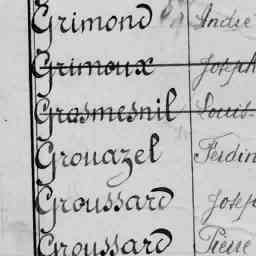 Grimond André
Grimoux Joseph
Grasmesnil Louis-
Grouazel Ferdin
Groussard Josep
Groussard Pierre